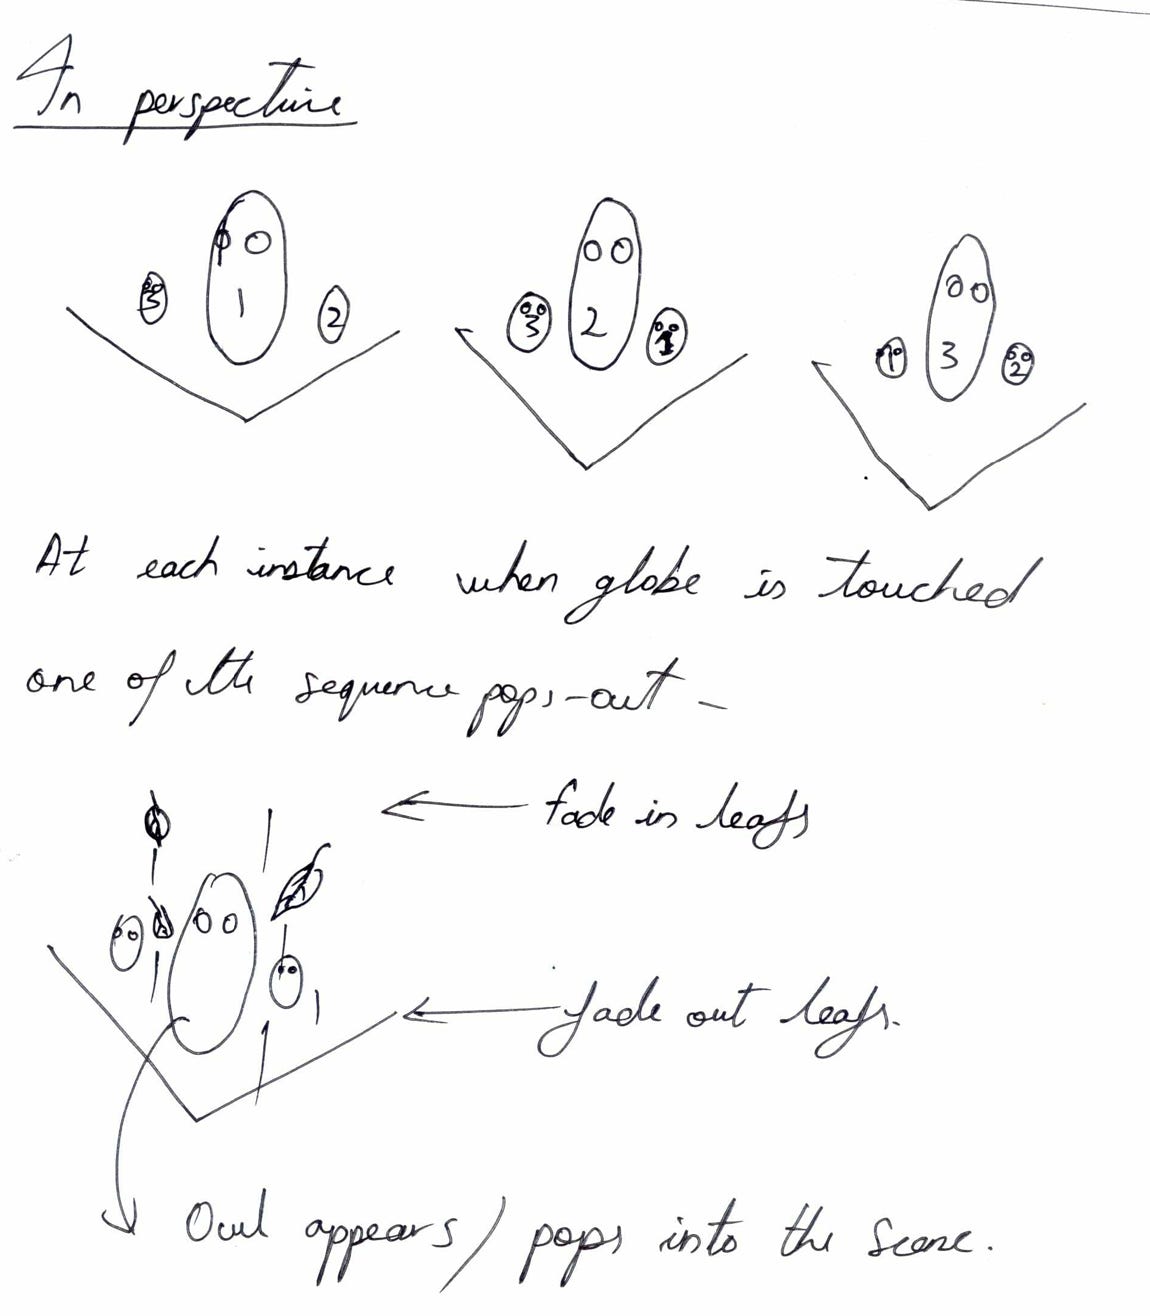 In perspective
3 1 2
3 2 1
1 3 2
At each instance when globe is touched
one of the sequence pops-out -
fade in leafs
fade out leafs.
Owl appears / pops into the scene.